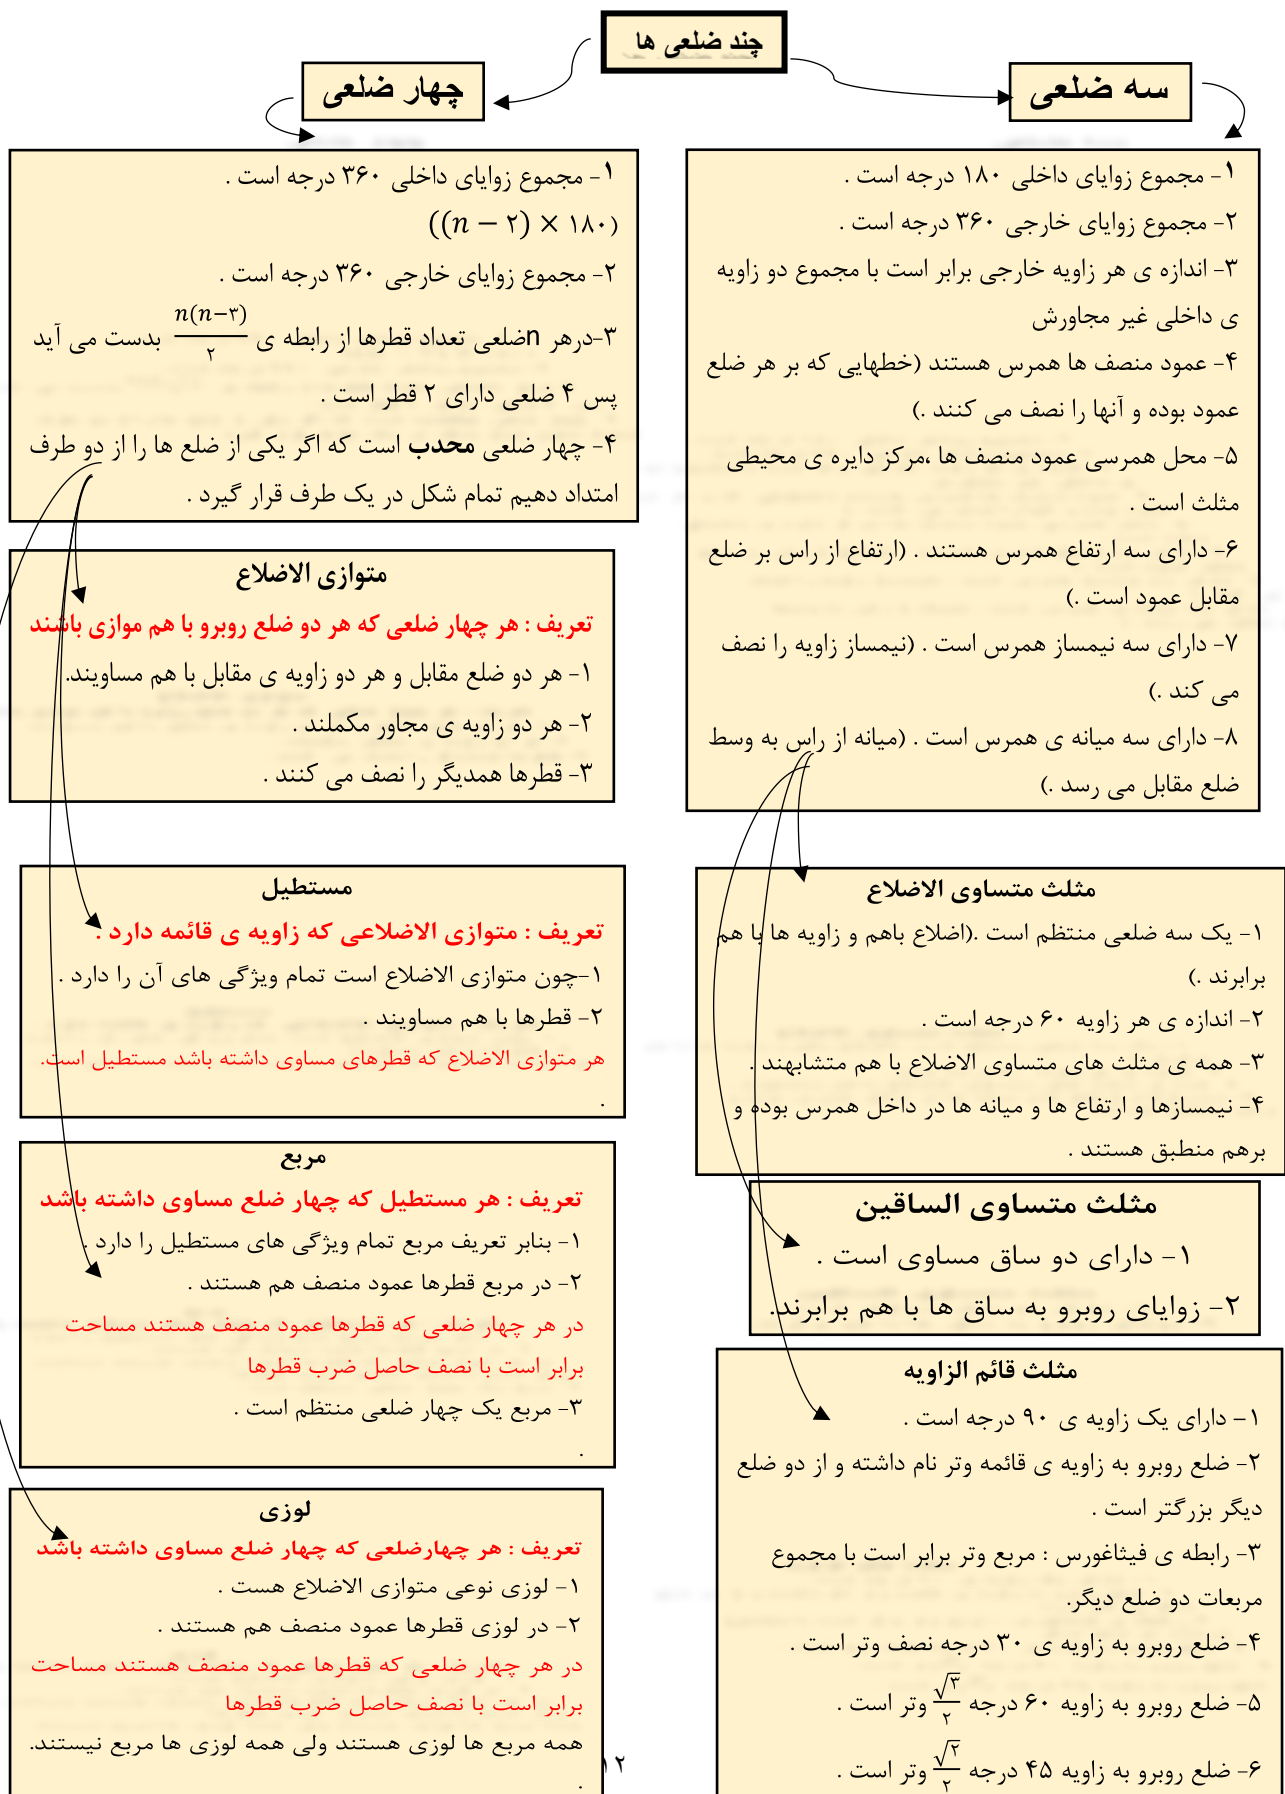 چند ضلعی ها
سه ضلعی
۱- مجموع زوایای داخلی ۱۸۰ درجه است .
۲- مجموع زوایای خارجی ۳۶۰ درجه است .
۳- اندازه ی هر زاویه خارجی برابر است با مجموع دو زاویه
ی داخلی غیر مجاورش
۴- عمود منصف ها همرس هستند (خطهایی که بر هر ضلع
عمود بوده و آنها را نصف می کنند .)
۵- محل همرسی عمود منصف ها ،مرکز دایره ی محیطی
مثلث است .
۶- دارای سه ارتفاع همرس هستند . (ارتفاع از راس بر ضلع
مقابل عمود است .)
۷- دارای سه نیمساز همرس است . (نیمساز زاویه را نصف
می کند .)
۸- دارای سه میانه ی همرس است . (میانه از راس به وسط
ضلع مقابل می رسد .)
مثلث متساوی الاضلاع
۱- یک سه ضلعی منتظم است .(اضلاع باهم و زاویه ها با هم
برابرند .)
۲- اندازه ی هر زاویه ۶۰ درجه است .
۳- همه ی مثلث های متساوی الاضلاع با هم متشابهند .
۴- نیمسازها و ارتفاع ها و میانه ها در داخل همرس بوده و
برهم منطبق هستند .
مثلث متساوی الساقین
۱- دارای دو ساق مساوی است .
۲- زوایای روبرو به ساق ها با هم برابرند.
مثلث قائم الزاویه
۱- دارای یک زاویه ی ۹۰ درجه است .
۲- ضلع روبرو به زاویه ی قائمه وتر نام داشته و از دو ضلع
دیگر بزرگتر است .
۳- رابطه ی فیثاغورس : مربع وتر برابر است با مجموع
مربعات دو ضلع دیگر.
۴- ضلع روبرو به زاویه ی ۳۰ درجه نصف وتر است .
۵- ضلع روبرو به زاویه ۶۰ درجه √۳/۲ وتر است .
۶- ضلع روبرو به زاویه ۴۵ درجه √۲/۲ وتر است .
چهار ضلعی
۱- مجموع زوایای داخلی ۳۶۰ درجه است .
((n − ۲) × ۱۸۰)
۲- مجموع زوایای خارجی ۳۶۰ درجه است .
۳-درهر nضلعی تعداد قطرها از رابطه ی n(n−۳)/۲ بدست می آید
پس ۴ ضلعی دارای ۲ قطر است .
۴- چهار ضلعی محدب است که اگر یکی از ضلع ها را از دو طرف
امتداد دهیم تمام شکل در یک طرف قرار گیرد .
متوازی الاضلاع
تعریف : هر چهار ضلعی که هر دو ضلع روبرو با هم موازی باشند
۱- هر دو ضلع مقابل و هر دو زاویه ی مقابل با هم مساویند.
۲- هر دو زاویه ی مجاور مکملند .
۳- قطرها همدیگر را نصف می کنند .
مستطیل
تعریف : متوازی الاضلاعی که زاویه ی قائمه دارد .
۱-چون متوازی الاضلاع است تمام ویژگی های آن را دارد .
۲- قطرها با هم مساویند .
هر متوازی الاضلاع که قطرهای مساوی داشته باشد مستطیل است.
.
مربع
تعریف : هر مستطیل که چهار ضلع مساوی داشته باشد
۱- بنابر تعریف مربع تمام ویژگی های مستطیل را دارد .
۲- در مربع قطرها عمود منصف هم هستند .
در هر چهار ضلعی که قطرها عمود منصف هستند مساحت
برابر است با نصف حاصل ضرب قطرها
۳- مربع یک چهار ضلعی منتظم است .
.
لوزی
تعریف : هر چهارضلعی که چهار ضلع مساوی داشته باشد
۱- لوزی نوعی متوازی الاضلاع هست .
۲- در لوزی قطرها عمود منصف هم هستند .
در هر چهار ضلعی که قطرها عمود منصف هستند مساحت
برابر است با نصف حاصل ضرب قطرها
همه مربع ها لوزی هستند ولی همه لوزی ها مربع نیستند.
.
۱۲